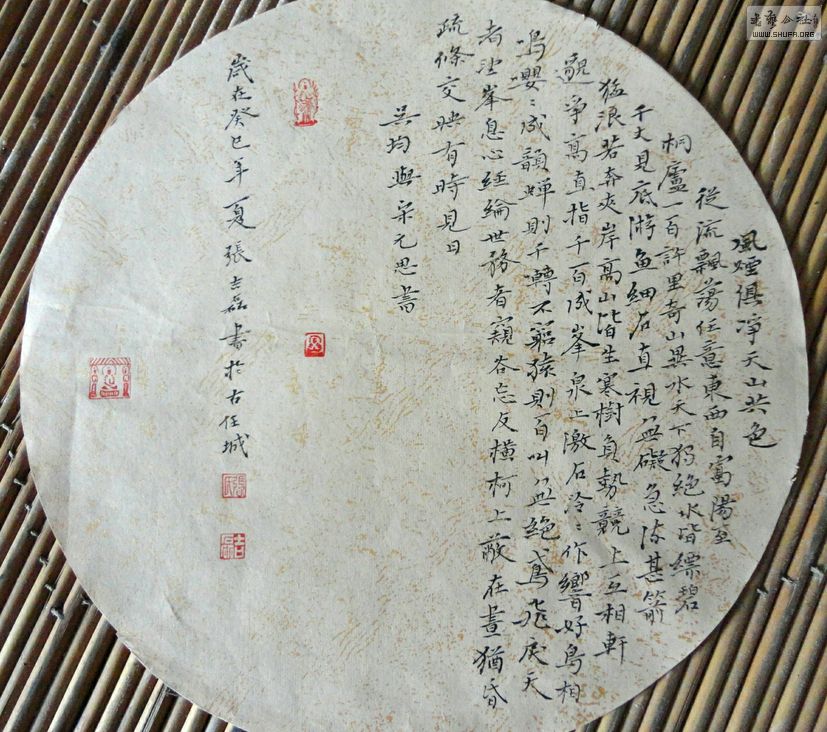 風煙俱凈天山共色
從流飄蕩任意東西自富陽至
桐廬一百許里奇山異水天下獨絕水皆縹碧
千丈見底游魚細石直視無礙急湍甚箭
猛浪若奔夾岸高山皆生寒樹負勢競上互相軒
邈爭高直指千百成峯泉上激石泠〻作響好鳥相
鳴嚶〻成韻蟬則千轉不窮猿則百叫無絕鳶飛戾天
者望峯息心經綸世務者窺谷忘反橫柯上蔽在晝猶昏
疏條交映有時見日
吳均與宋元思書
歲在癸巳年夏張吉磊書於古任城
書藝公社
WWW.SHUFA.ORG